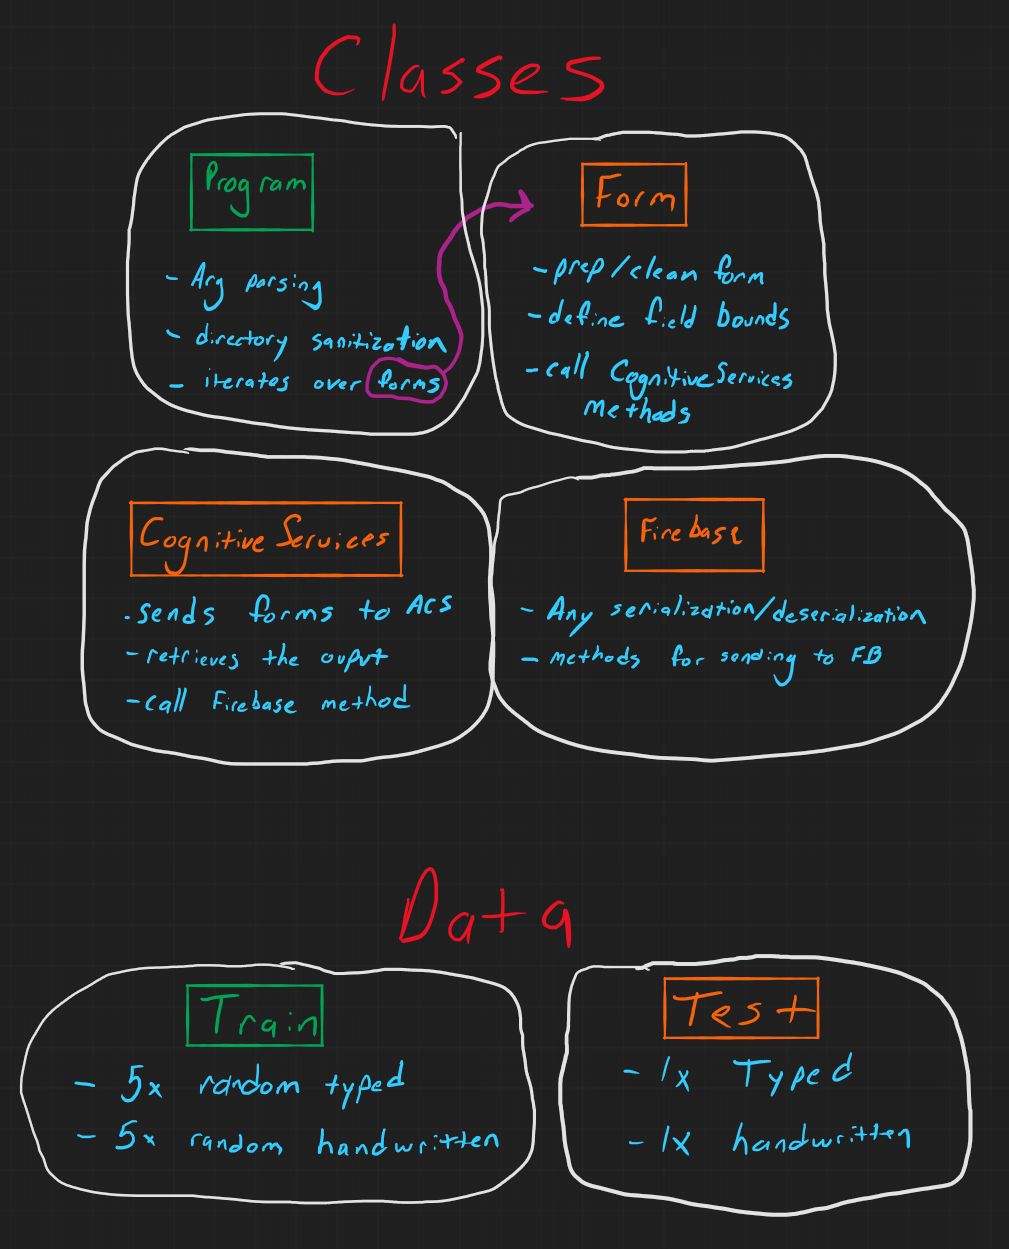 Classes
Program
- Arg parsing
- directory sanitization
- iterates over forms
Form
- prep/clean form
- define field bounds
- call CognitiveServices
methods
Cognitive Services
. sends forms to ACS
- retrieves the ouput
- call Firebase method
Firebase
- Any serialization/deserialization
- methods for sending to FB
Data
Train
- 5x random typed
- 5x random handwritten
Test
- 1x Typed
- 1x handwritten